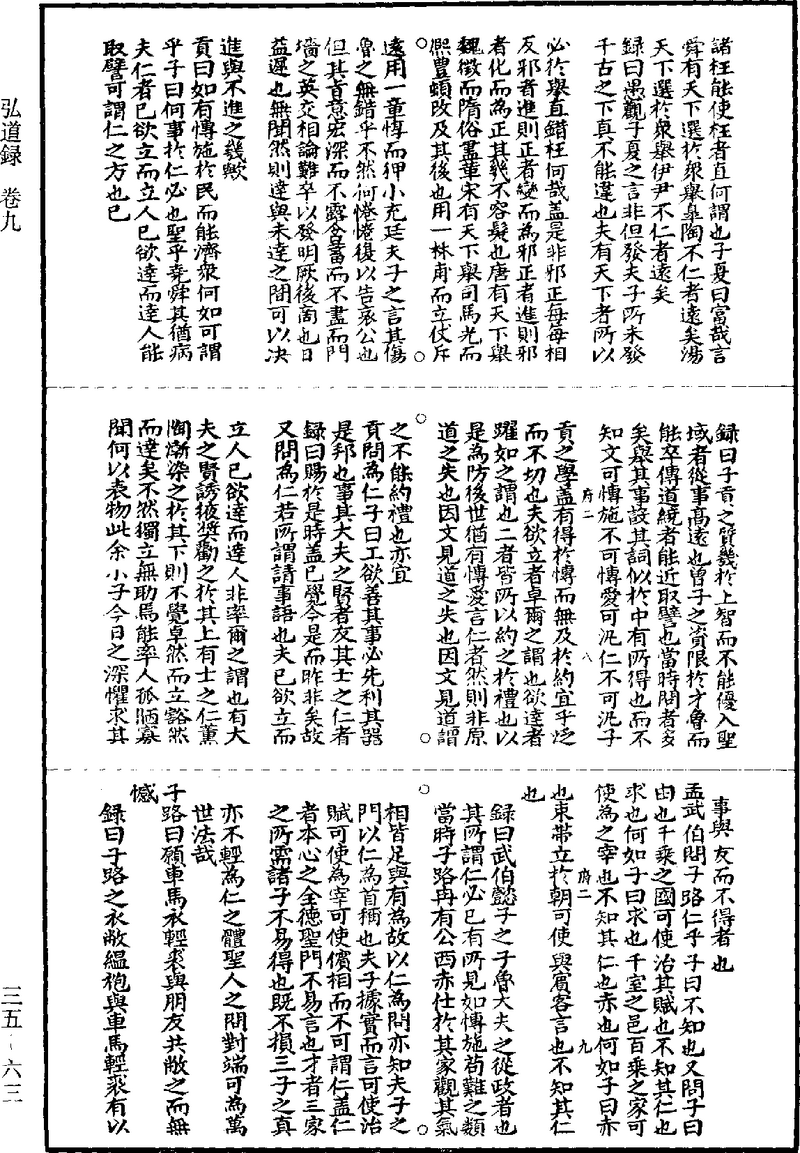 諸枉能使枉者直何謂也子夏曰富哉言
舜有天下選於衆舉臯陶不仁者遠矣湯
天下選於衆舉伊尹不仁者遠矣
録曰愚觀子夏之言非但發夫子所未發
千古之下真不能違也夫有天下者所以
必於舉直錯枉何哉蓋是非邪正每每相
反邪者進則正者變而為邪正者進則邪
者化而為正其幾不容髮也唐有天下舉
魏徵而隋俗盡革宋有天下舉司馬光而
熈豐頓改及其後也用一林甫而立仗斥
遠用一章惇而狎小充廷夫子之言其傷
魯之無錯乎不然何惓惓復以告哀公也
但其肯意宏深而不露含蓄而不盡而門
墻之英交相論難卒以發明厥後商也日
益遲也無聞然則達與未達之間可以决
進與不進之幾歟
貢曰如有博施於民而能濟衆何如可謂
乎子曰何事於仁必也聖乎堯舜其猶病
夫仁者已欲立而立人已欲達而達人能
取譬可謂仁之方也已
録曰子貢之質幾於上智而不能優入聖
域者從事高遠也曽子之資限於才魯而
能卒傳道統者能近取譬也當時問者多
矣舉其事設其詞似於中有所得也而不
知文可博施不可博愛可汎仁不可汎子
貢之學蓋有得於博而無及於約宜乎泛
而不切也夫欲立者卓爾之謂也欲達者
躍如之謂也二者皆所以約之於禮也以
是為防後世猶有博愛言仁者然則非原
道之失也因文見道之失也因文見道謂
之不能約禮也亦宜
貢問為仁子曰工欲善其事必先利其器
是邦也事其大夫之賢者友其士之仁者
録曰賜於是時蓋已覺今是而昨非矣故
又問為仁若所謂請事語也夫已欲立而
立人已欲達而達人非率爾之謂也有大
夫之賢誘掖奬勸之於其上有士之仁薰
陶漸染之於其下則不覺卓然而立豁然
而達矣不然獨立無助焉能率人孤陋寡
聞何以表物此余小子今日之深懼求其
事與友而不得者也
孟武伯問子路仁乎子曰不知也又問子曰
由也千乘之國可使治其賦也不知其仁也
求也何如子曰求也千室之邑百乘之家可
使為之宰也不知其仁也赤也何如子曰赤
也束帶立於朝可使與賓客言也不知其仁
也
録曰武伯懿子之子魯大夫之從政者也
其所謂仁必已有所見如博施茍難之類
當時子路冉有公西赤仕於其家觀其氣
相皆足與有為故以仁為問亦知夫子之
門以仁為首稱也夫子據實而言可使治
賦可使為宰可使儐相而不可謂仁蓋仁
者本心之全德聖門不易言也才者三家
之所需諸子不易得也既不損三子之真
亦不輕為仁之體聖人之問對端可為萬
世法哉
子路曰願車馬衣輕裘與朋友共敝之而無
憾
録曰子路之衣敝緼袍與車馬輕裘有以
府二 八
府二 九
弘道録 卷九
三五-六三